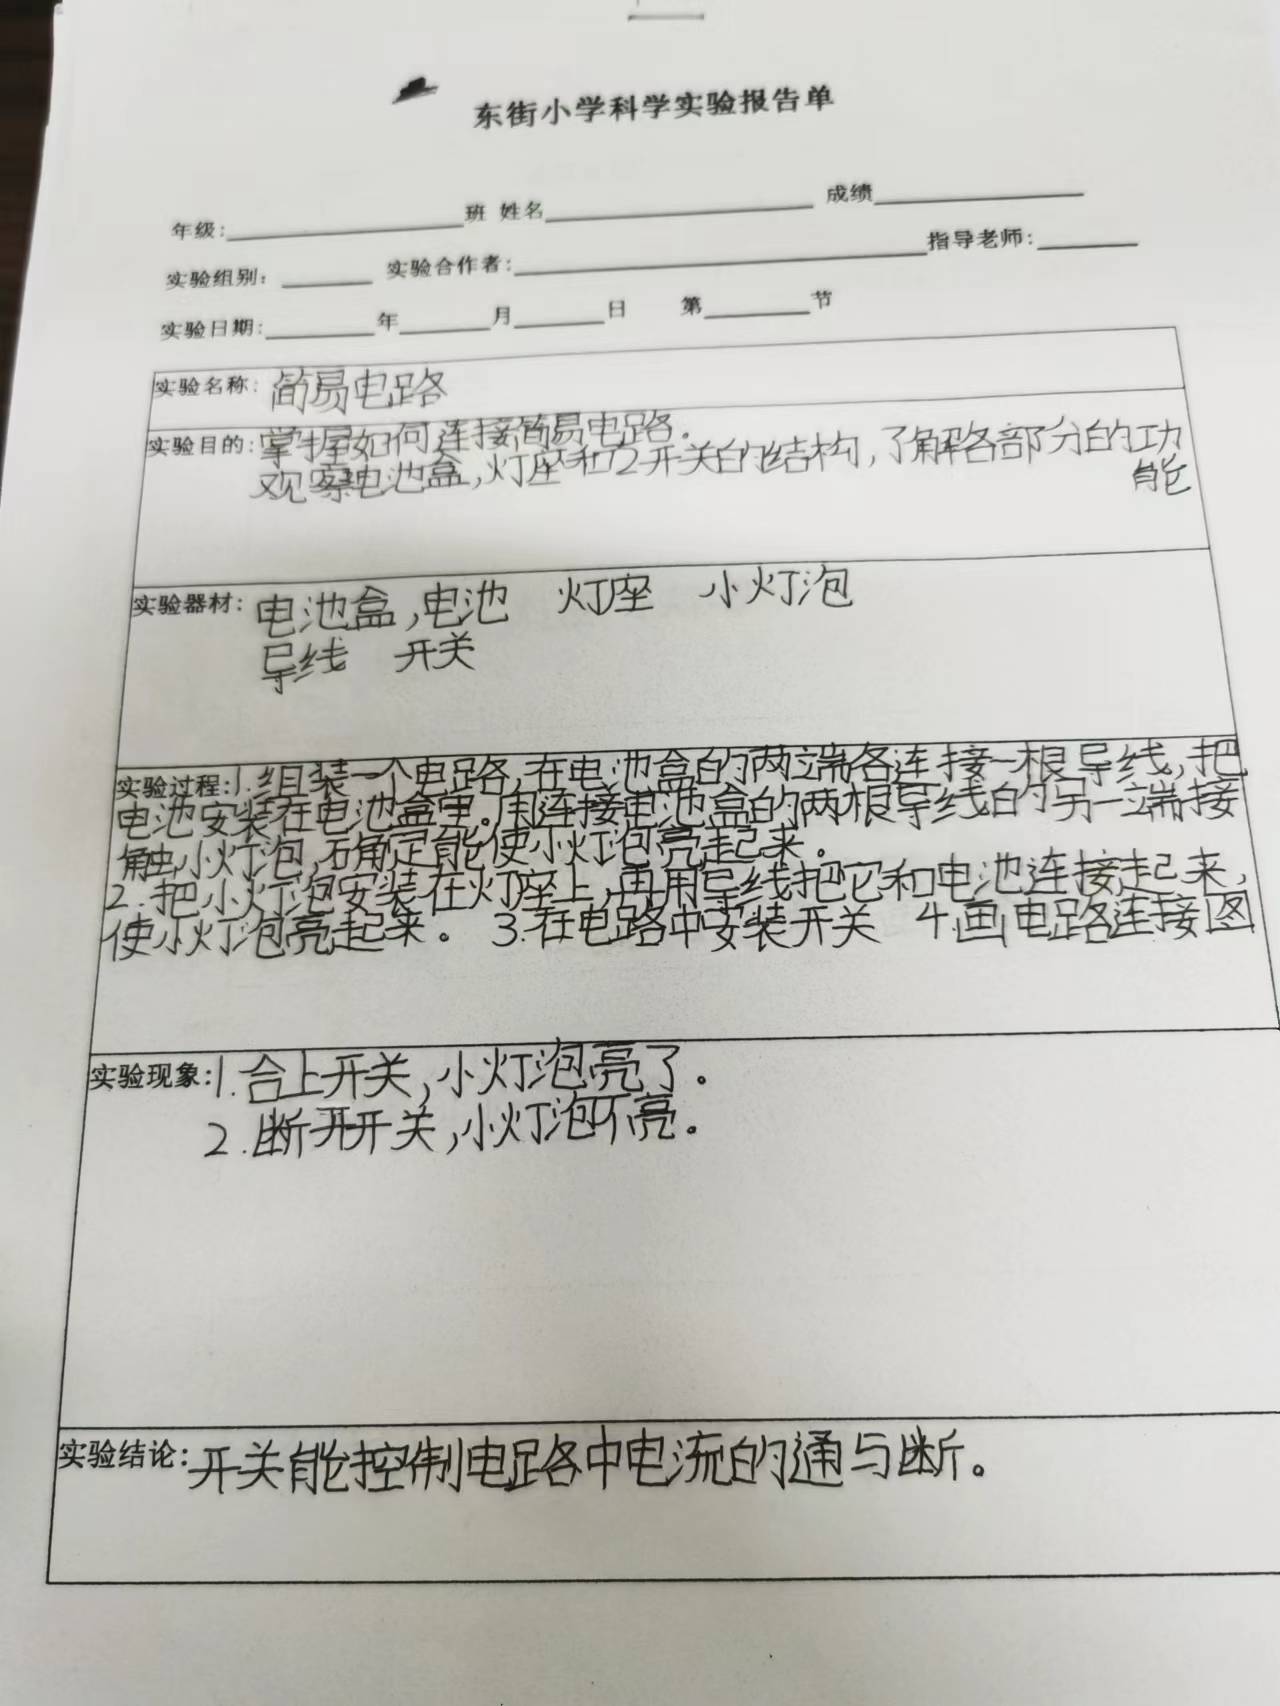 东街小学科学实验报告单
年级:____________班 姓名____________ 成绩____________
实验组别:______ 实验合作者:____________指导老师:______
实验日期:______年______月______日 第______节
实验名称:简易电路
实验目的:掌握如何连接简易电路.
观察电池盒,灯座和2开关的结构,了解各部分的功
能
实验器材:电池盒,电池 灯座 小灯泡
导线 开关
实验过程:1.组装一个电路,在电池盒的两端各连接一根导线,把
电池安装在电池盒里。用连接电池盒的两根导线的另一端接
触小灯泡,确定能使小灯泡亮起来。
2.把小灯泡安装在灯座上,再用导线把它和电池连接起来,
使小灯泡亮起来。 3.在电路中安装开关 4.画电路连接图
实验现象:1.合上开关,小灯泡亮了。
2.断开开关,小灯泡不亮。
实验结论:开关能控制电路中电流的通与断。